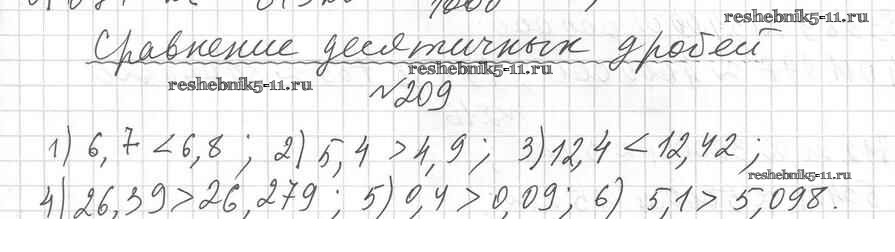 reshebnik5-11.ru
Сравнение десятичных дробей
reshebnik5-11.ru
reshebnik5-11.ru
№209
1) 6,7 < 6,8 ; 2) 5,4 > 4,9 ; 3) 12,4 < 12,42 ;
reshebnik5-11.ru
4) 26,39 > 26,279 ; 5) 0,4 > 0,09 ; 6) 5,1 > 5,098.